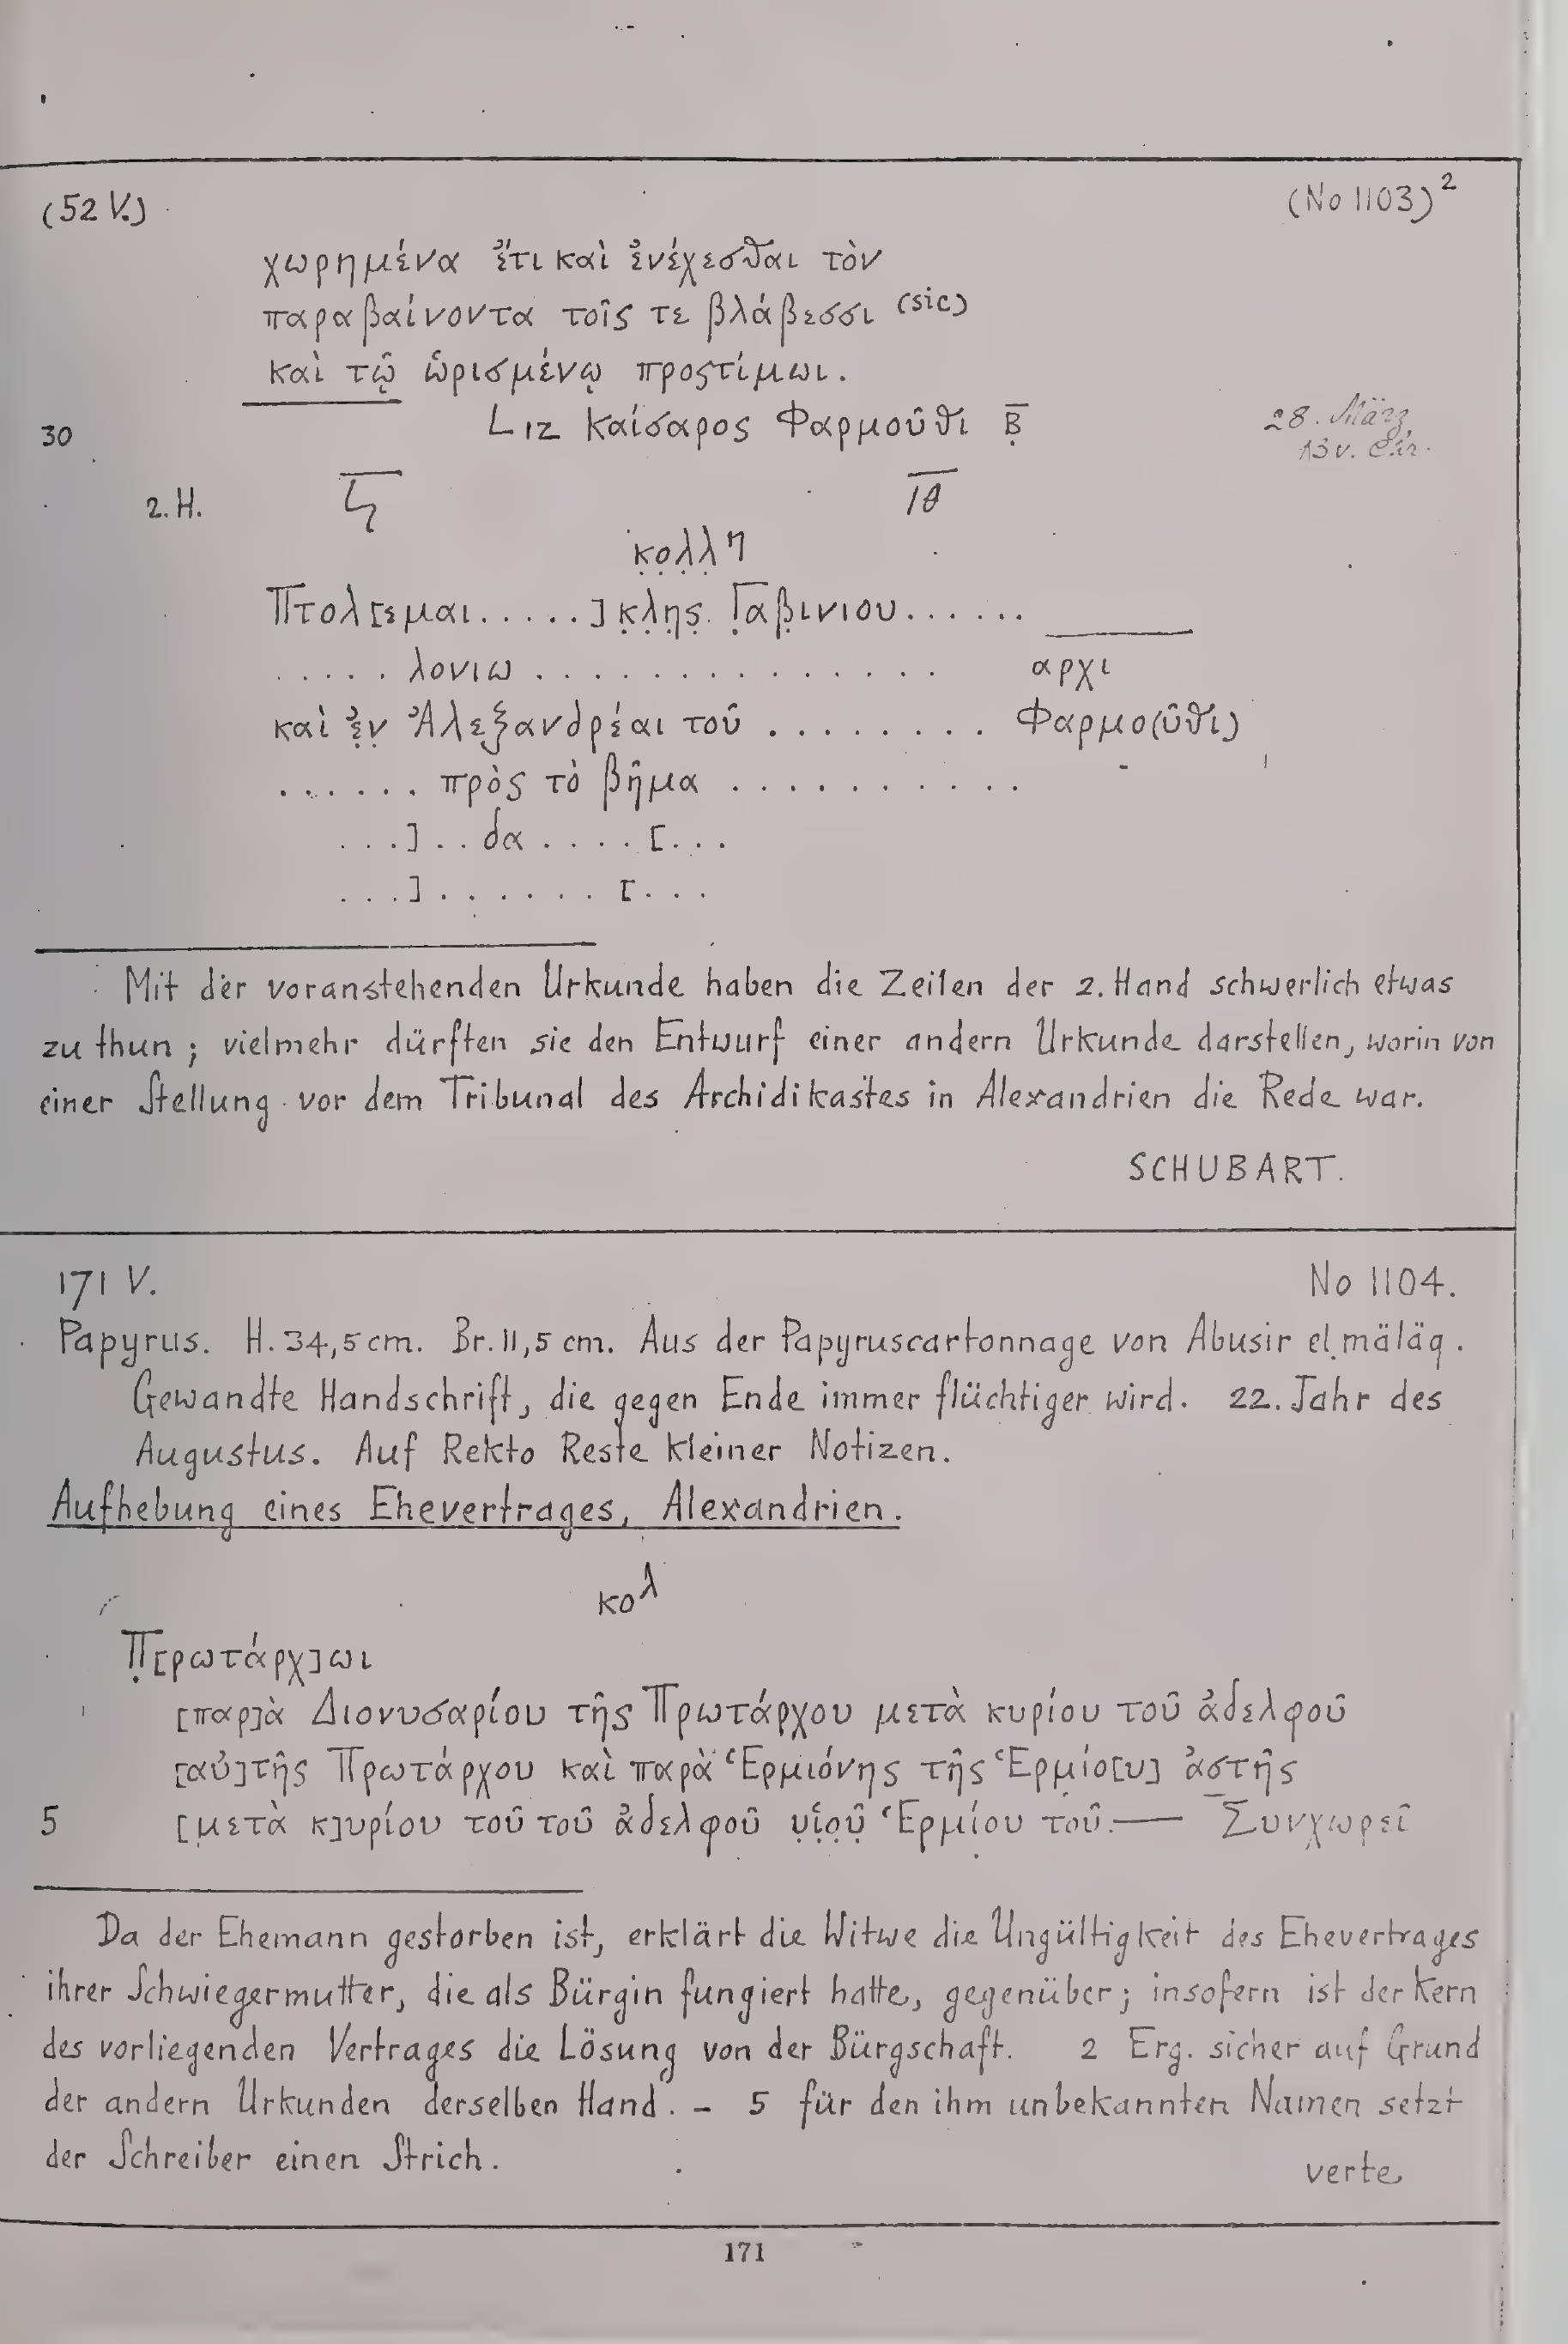 (52 V.)
(No 1103)²
χωρημένα ἔτι καὶ ἐνέχεσθαι τὸν
παραβαίνοντα τοῖς τε βλάβεσσι (sic)
καὶ τῷ ὡρισμένῳ προςτίμωι.
30 L ιζ Καίσαρος Φαρμοῦθι β̣̅
28. März,
13 v. Chr.
2. H. ι̅θ̅
κ̣ο̣λ̣λ̣ η
Πτολ[εμαι.....]κ̣λ̣η̣ς̣ Γ̣αβ̣ινιου......
.....λονιω.............. αρχι
καὶ ἐ̣ν̣ Ἀλεξανδρέαι τοῦ ........ Φαρμο(ῦθι)
...... πρὸς τὸ βῆμα ..........
...]..δα....[...
...]......[...
Mit der voranstehenden Urkunde haben die Zeilen der 2. Hand schwerlich etwas
zu thun; vielmehr dürften sie den Entwurf einer andern Urkunde darstellen, worin von
einer Stellung vor dem Tribunal des Archidikastes in Alexandrien die Rede war.
SCHUBART.
171 V.
No 1104.
Papyrus. H. 34,5 cm. Br. 11,5 cm. Aus der Papyruscartonnage von Abusir el mäläq.
Gewandte Handschrift, die gegen Ende immer flüchtiger wird. 22. Jahr des
Augustus. Auf Rekto Reste kleiner Notizen.
Aufhebung eines Ehevertrages, Alexandrien.
κολ
Π̣[ρωτάρχ]ωι
[παρ]ὰ Διονυσαρίου τῆς Πρωτάρχου μετὰ κυρίου τοῦ ἀδελφοῦ
[αὐ]τῆς Πρωτάρχου καὶ παρὰ Ἑρμιόνης τῆς Ἑρμίο[υ] ἀστῆς
5 [μετὰ κ]υρίου τοῦ τοῦ ἀδελφοῦ υ̣ἱ̣ο̣ῦ̣ Ἑρμίου τοῦ.— Συνχωρεῖ
Da der Ehemann gestorben ist, erklärt die Witwe die Ungültigkeit des Ehevertrages
ihrer Schwiegermutter, die als Bürgin fungiert hatte, gegenüber; insofern ist der Kern
des vorliegenden Vertrages die Lösung von der Bürgschaft. 2 Erg. sicher auf Grund
der andern Urkunden derselben Hand. – 5 für den ihm unbekannten Namen setzt
der Schreiber einen Strich.
verte
171